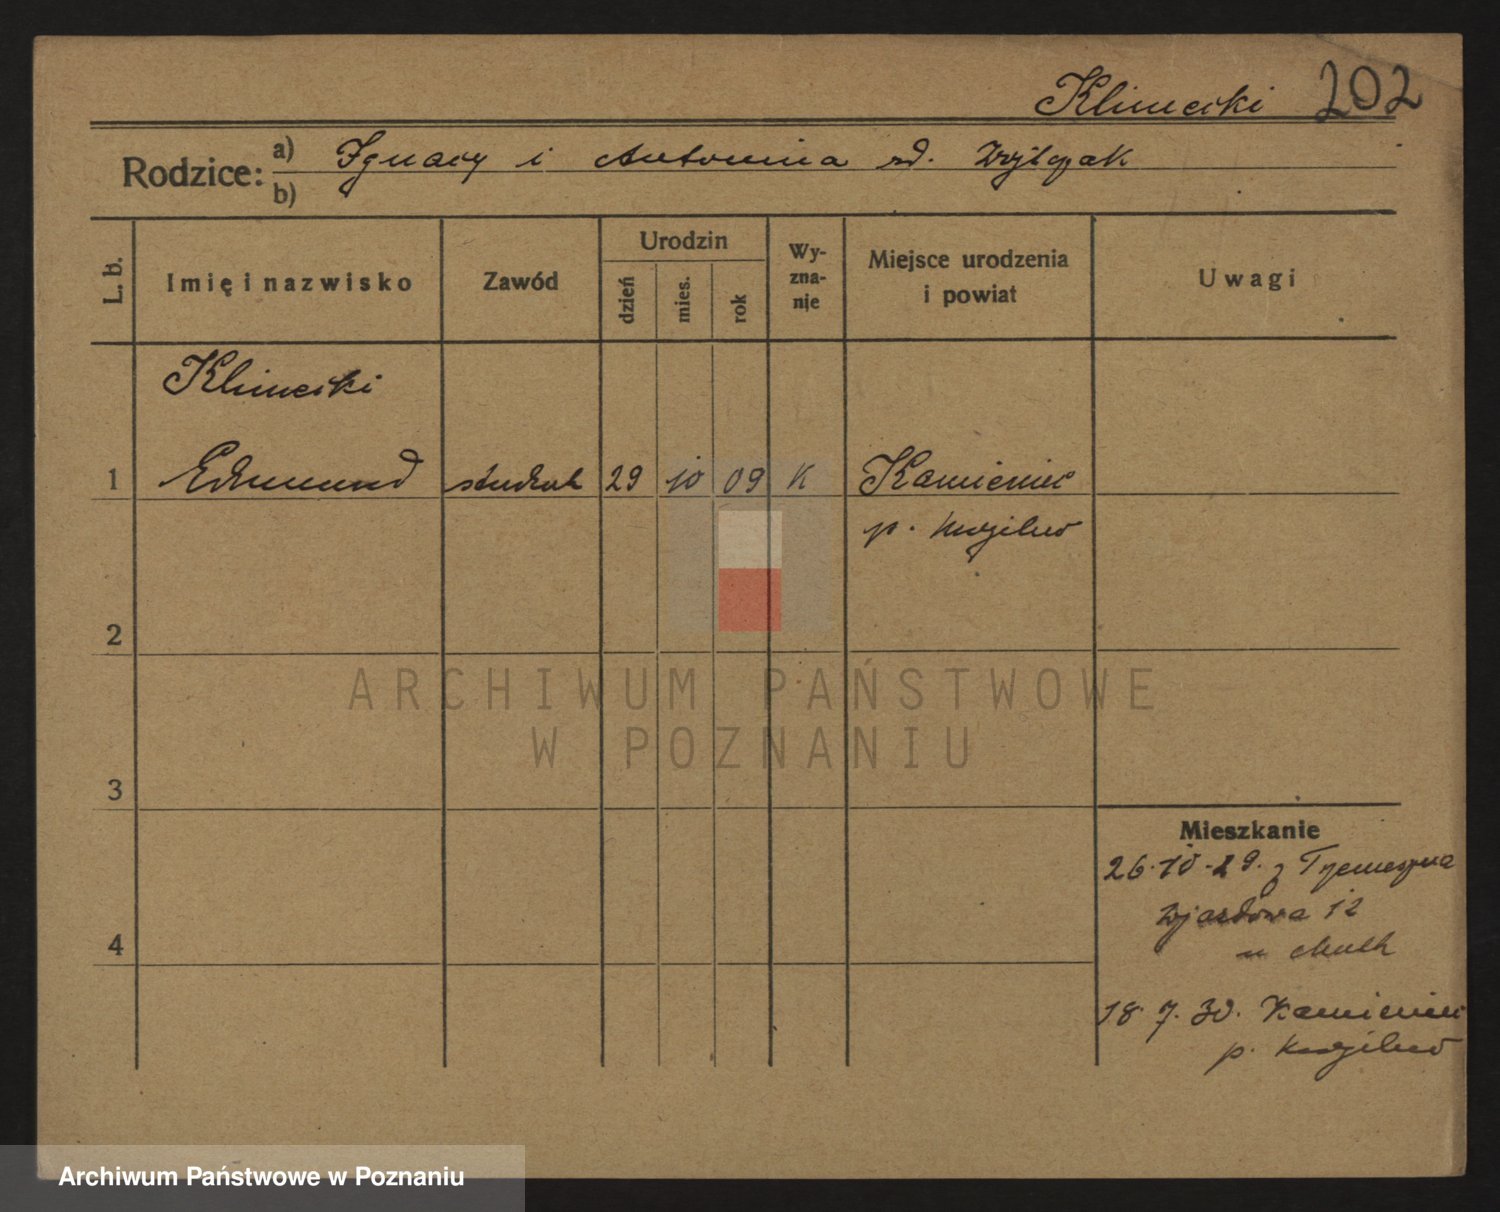 Klimecki 202
Rodzice: a) Ignacy i Antonina rd. Wojtczak
b)
L. b. Imię i nazwisko Zawód Urodzin dzień mies. rok Wy-zna-nie Miejsce urodzenia i powiat Uwagi
Klimecki
1 Edmund student 29 10 09 K Kamieniec
p. Mogilno
2
ARCHIWUM PAŃSTWOWE
W POZNANIU
3
Mieszkanie
26.10.29. z Trzemeszna
Wjazdowa 12
4
u
18.7.30. Kamieniec
p. Mogilno
Archiwum Państwowe w Poznaniu